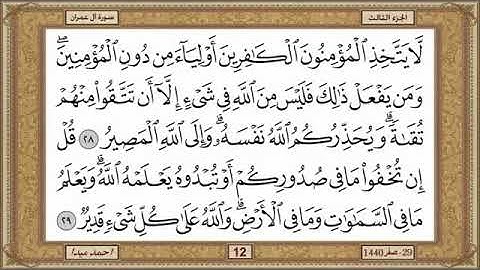 الجزء الثالث
سورة آل عمران
لَّا يَتَّخِذِ ٱلْمُؤْمِنُونَ ٱلْكَٰفِرِينَ أَوْلِيَآءَ مِن دُونِ ٱلْمُؤْمِنِينَۖ
وَمَن يَفْعَلْ ذَٰلِكَ فَلَيْسَ مِنَ ٱللَّهِ فِى شَىْءٍ إِلَّآ أَن تَتَّقُوا۟ مِنْهُمْ
تُقَىٰةًۗ وَيُحَذِّرُكُمُ ٱللَّهُ نَفْسَهُۥۗ وَإِلَى ٱللَّهِ ٱلْمَصِيرُ ٢٨ قُلْ
إِن تُخْفُوا۟ مَا فِى صُدُورِكُمْ أَوْ تُبْدُوهُ يَعْلَمْهُ ٱللَّهُۗ وَيَعْلَمُ
مَا فِى ٱلسَّمَٰوَٰتِ وَمَا فِى ٱلْأَرْضِۗ وَٱللَّهُ عَلَىٰ كُلِّ شَىْءٍ قَدِيرٌ ٢٩
29- صفر 1440
12